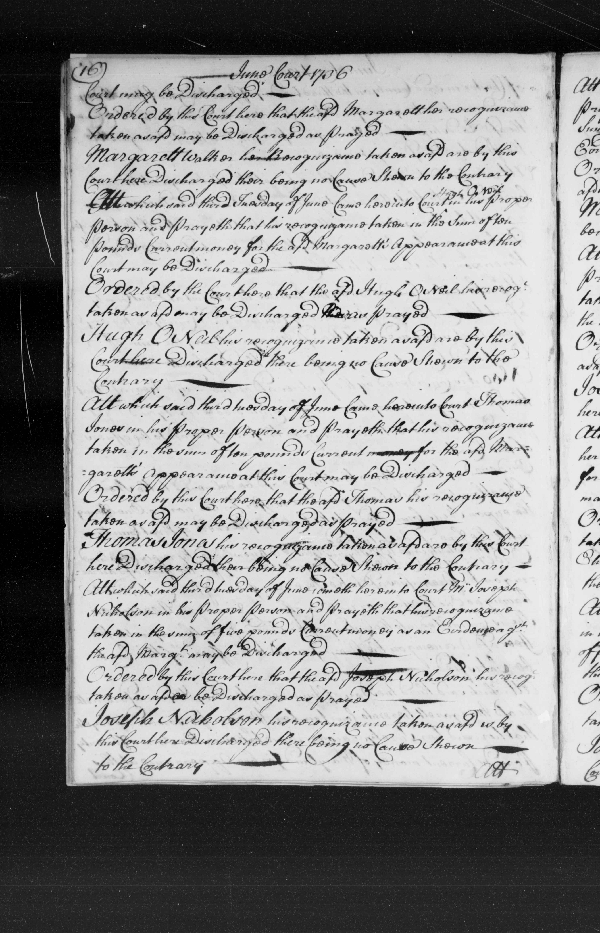 (16) June Court 1736
Court may be Discharged
Ordered by this Court here that the afd Margarett her recognizance
taken as afd may be Discharged as prayed
Margarett Walker her recognizance taken as afd are by this
Court here Discharged their being no Cause Shewn to the Contrary
Att which said third Tuesday of June Came here into Court Hugh O Neil in his proper
person and prayeth that his recognizance taken in the Sum of ten
pounds Current money for the afd Margaretts Appearance at this
Court may be Discharged
Ordered by the Court here that the afd Hugh O Neil his recoge
taken as afd may be Discharged as prayed
Hugh O Neil his recognizance taken as afd are by this
Court here Discharged there being no Cause Shewn to the
Contrary
Att which said third tuesday of June Came here into Court Thomas
Jones in his proper person and prayeth that his recognizance
taken in the sum of ten pounds Current money for the afd Mar=
=garetts Appearance at this Court may be Discharged
Ordered by this Court here that the afd Thomas his recognizance
taken as afd may be Discharged as prayed
Thomas Jonas his recognizance taken as afd are by this Court
here Discharged their being no Cause Shewn to the Contrary
Att which said third tuesday of June cometh here into Court Mr Joseph
Nicholson in his proper person and prayeth that his recognizance
taken in the sum of five pounds Current money as an Evidence agst
the afd Margt may be Discharged
Ordered by this Court here that the afd Joseph Nicholson his recog
taken as afd be Discharged as prayed
Joseph Nicholson his recognizance taken as afd is by
this Court here Discharged there being no Cause Shewn
to the Contrary
Att